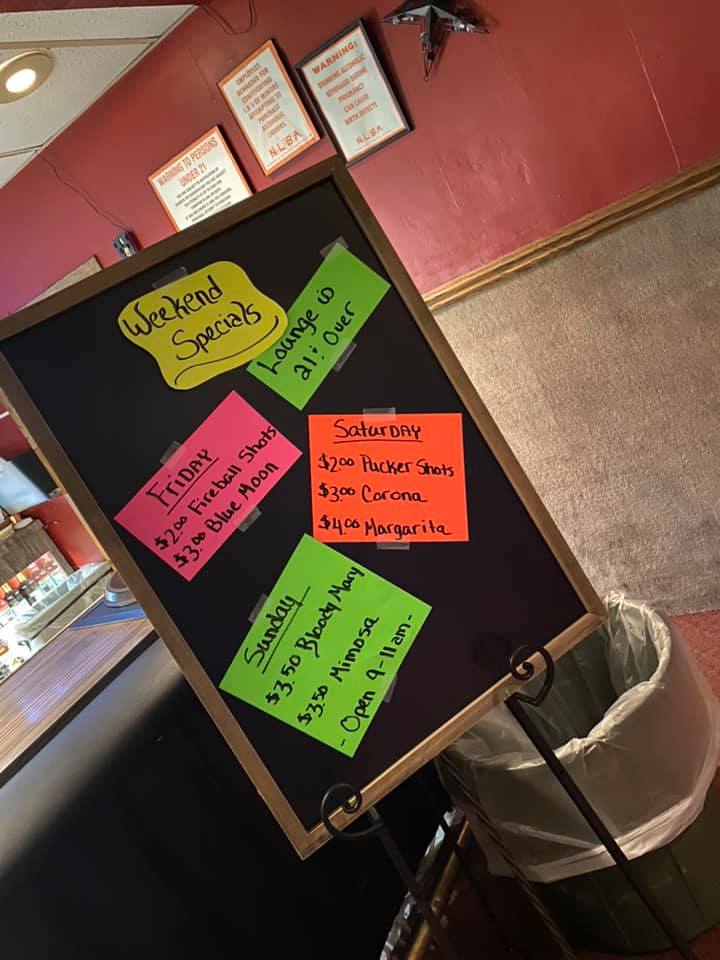 WARNING TO PERSONS
UNDER 21
EMPLOYEES
REWARDED FOR
CONFISCATING
I.D.'S OF MINORS
ATTEMPTING TO
PURCHASE
ALCOHOLIC
LIQUORS.
NLBA
WARNING:
DRINKING ALCOHOLIC
BEVERAGES DURING
PREGNANCY
CAN CAUSE
BIRTH DEFECTS
NLBA
Weekend
Specials
Lounge is
21 & Over
FRIDAY
$2.00 Fireball Shots
$3.00 Blue Moon
SaturDAY
$2.00 Pucker Shots
$3.00 Corona
$4.00 Margarita
Sunday
$3.50 Bloody Mary
$3.50 Mimosa
- Open 9-11am -